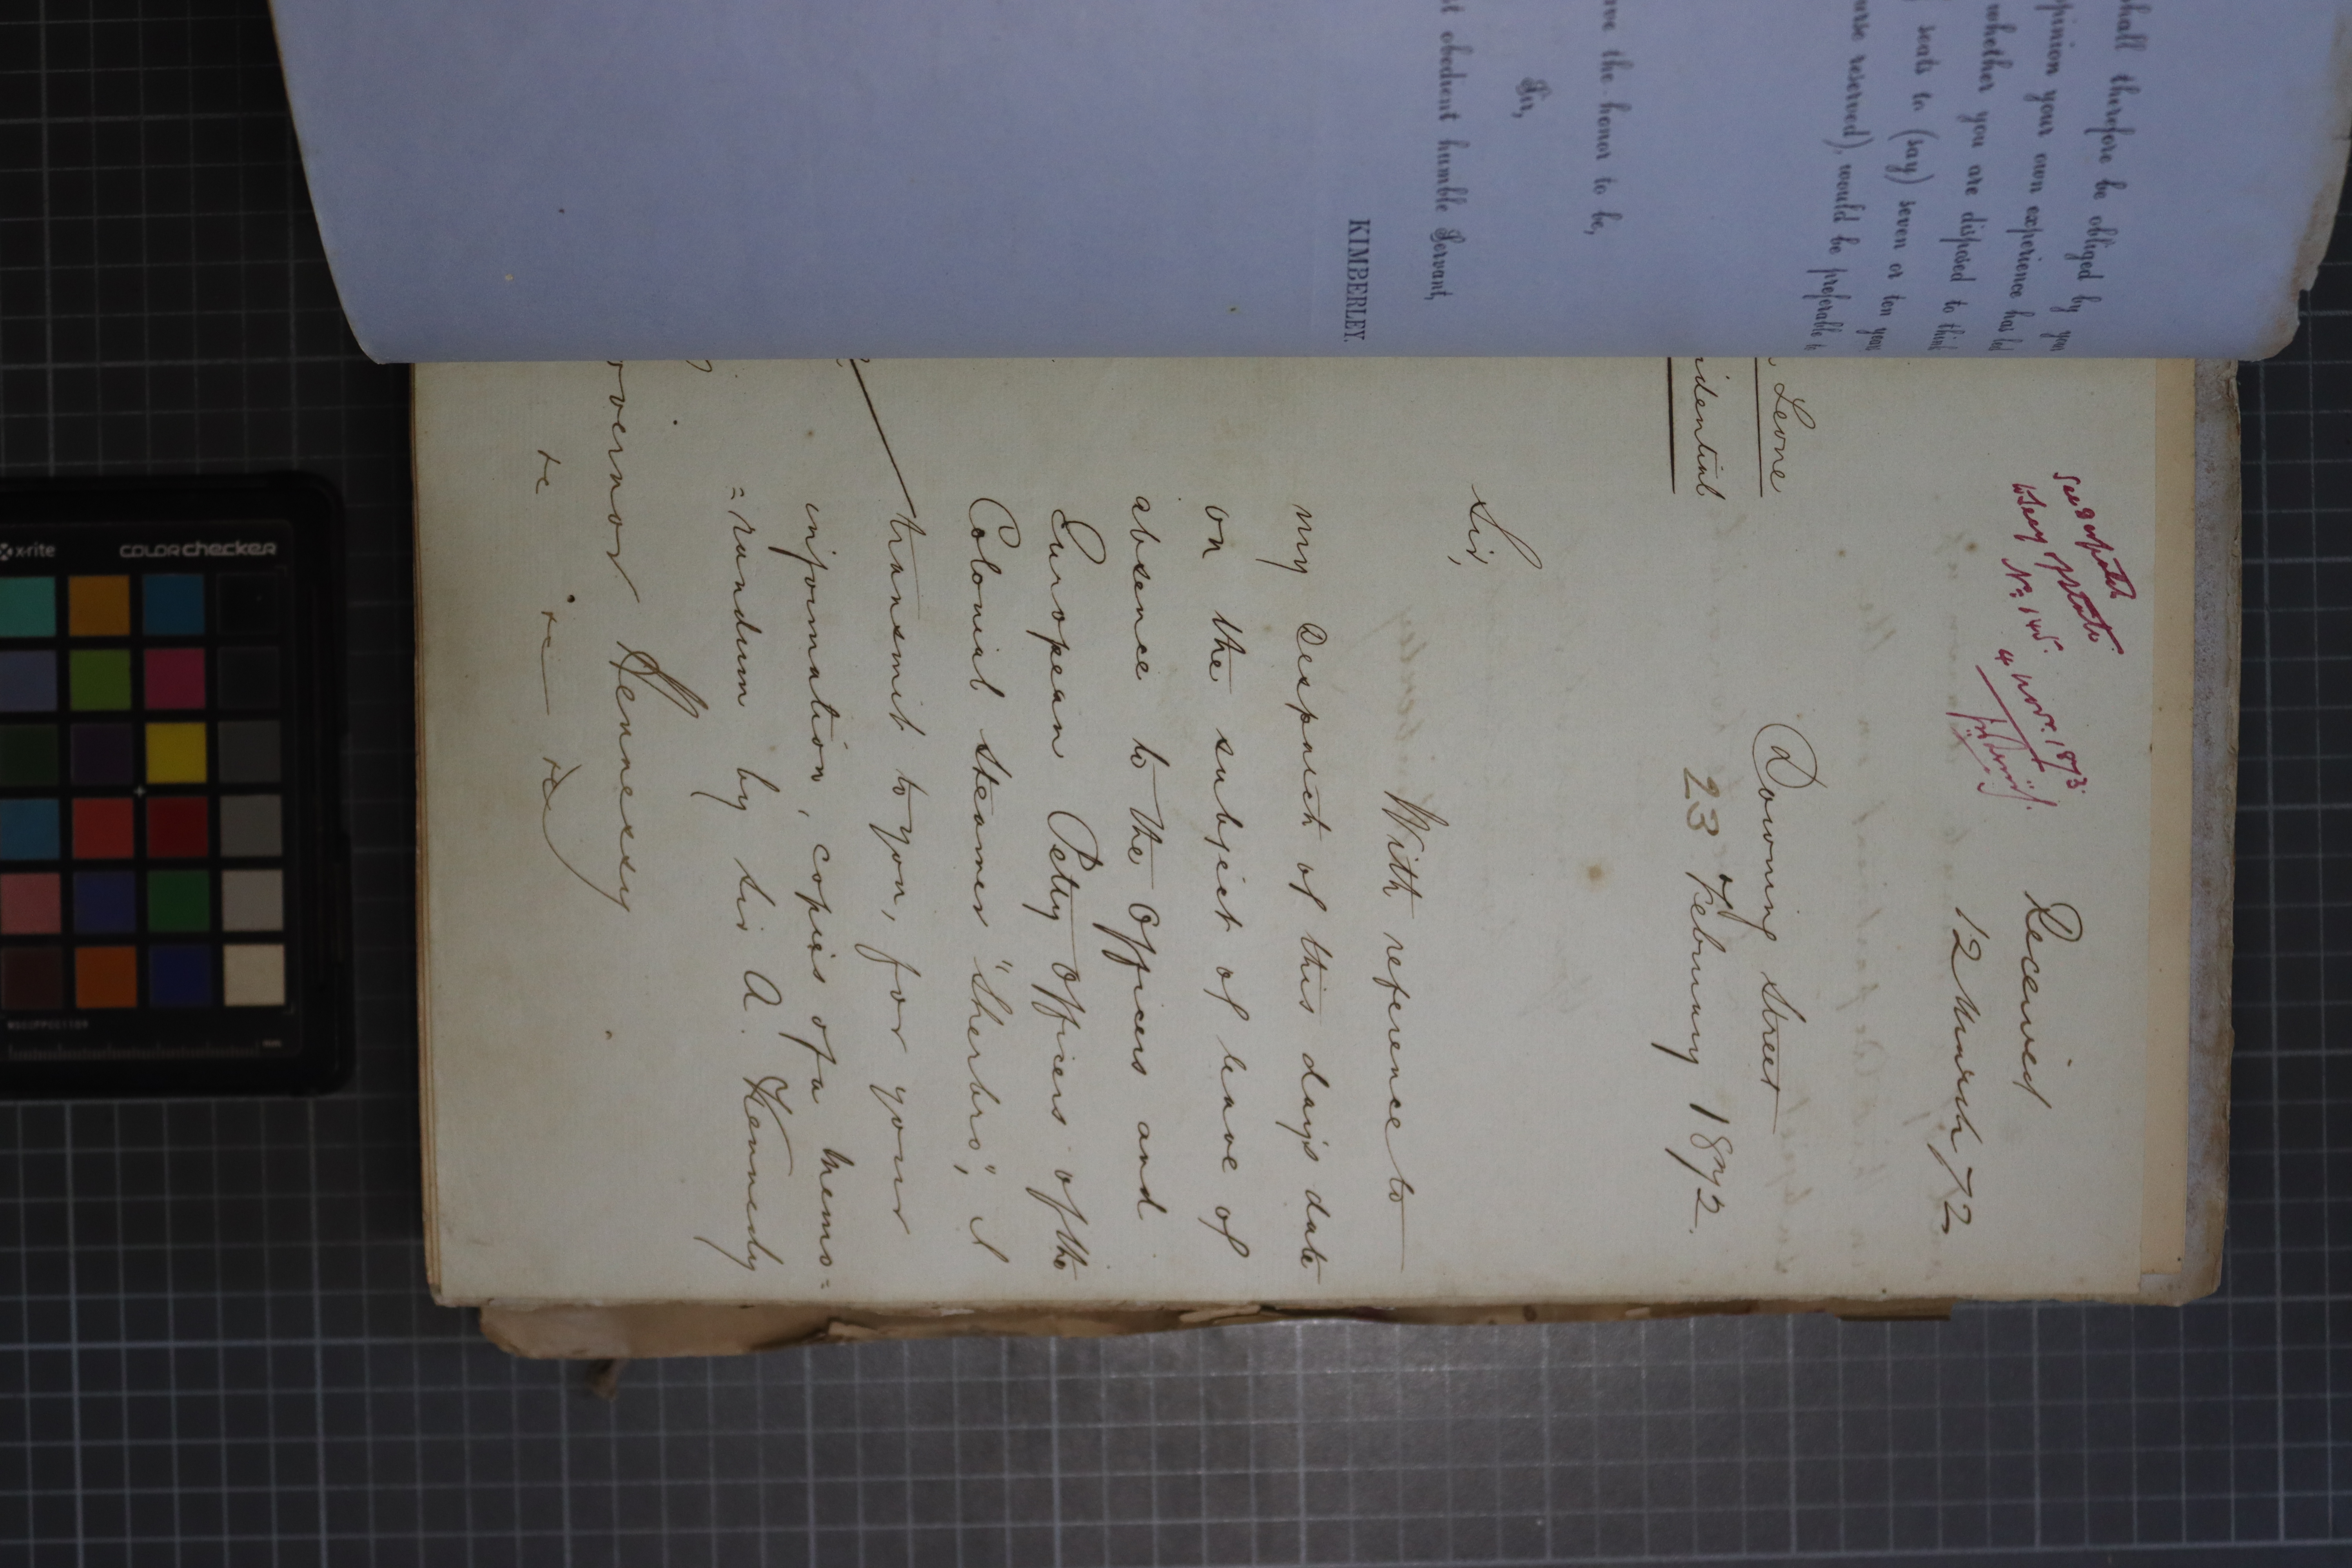 shall therefore be obliged by you
opinion your own experience has led
whether you are disposed to think
seats to (say) seven or ten years
urse reserved), would be preferable to
ave the honor to be,
Sir,
st obedient humble Servant,
KIMBERLEY.
See despatch
to Secy of State
No. 145.
4 Novr. 1873.
Received
12 March 72
Leone
idential
Downing Street
23 February 1872.
Sir,
With reference to
my Despatch of this day's date
on the subject of leave of
absence to the Officers and
European Petty Officers of the
Colonial Steamer "Sherbro", I
transmit to you, for your
information, copies of a memo=
=randum by Sir A. Kennedy
vernor Hennessy
&c &c &c
x-rite
colorchecker